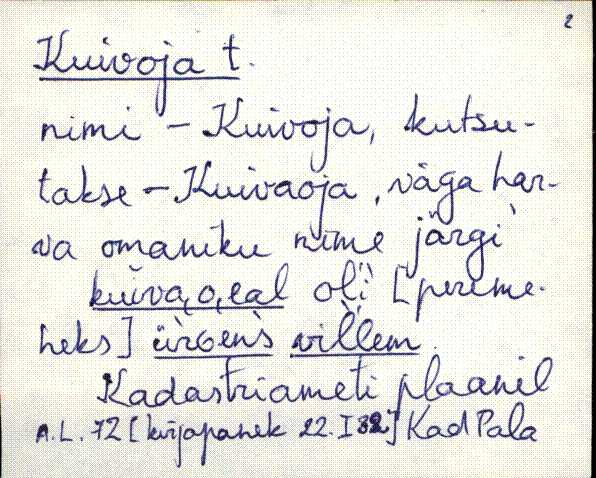 2
Kuivoja t.
nimi - Kuivoja, kutsu-
takse - Kuivaoja, väga har-
va omaniku nime järgi
kuiva,o,eal oli [pereme-
heks] ürgens villem.
Kadastriameti plaanil
A.L. 72 [kirjapanek 22.I 82] Kad Pala